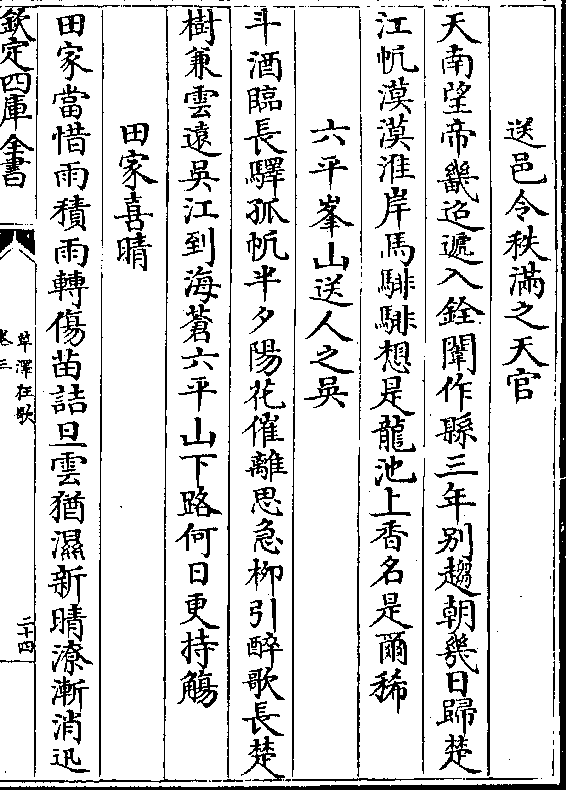 送邑令秩滿之天官
天南望帝畿迢遞入銓闈作縣三年别趨朝幾日歸楚
江帆漠漠淮岸馬騑騑想是龍池上香名是爾稀
六平峯山送人之吳
斗酒臨長驛孤帆半夕陽花催離思急栁引醉歌長楚
樹兼雲遠吳江到海蒼六平山下路何日更持觴
田家喜晴
田家當惜雨積雨轉傷苗詰旦雲猶濕新晴潦漸消迅
欽定四庫全書
草澤狂歌
卷三
二十四